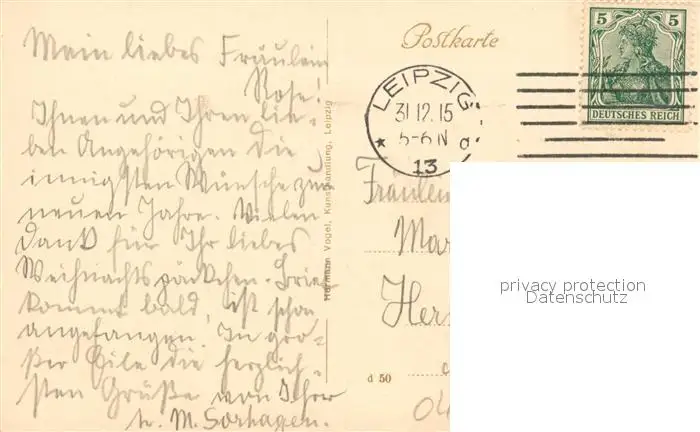 Mein liebes Fräulein
Rose!
Ihnen und Ihren lie-
ben Angehörigen die
innigsten Wünsche zum
neuen Jahre. Vielen
Dank für Ihr liebes
Weihnachtspäckchen. Brief
kommt bald, ist schon
angefangen. In gro-
ßer Eile die herzlich-
sten Grüße von Ihrer
M. Sorhagen.
Hermann Vogel, Kunsthandlung, Leipzig
Postkarte
LEIPZIG
31 12. 15
5-6 N
* 13
5 5
DEUTSCHES REICH
Fräulein
Mar
Hers
d 50
privacy protection
Datenschutz